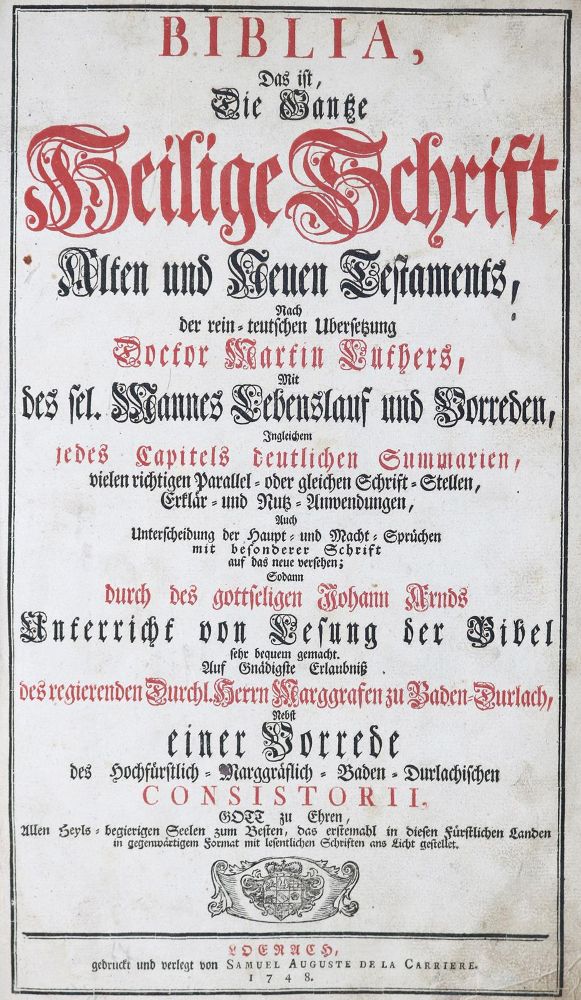 BIBLIA,
Das ist,
Die Gantze
Heilige Schrift
Alten und Neuen Testaments,
Nach
der rein-teutschen Ubersetzung
Doctor Martin Luthers,
Mit
des sel. Mannes Lebenslauf und Vorreden,
Ingleichem
jedes Capitels deutlichen Summarien,
vielen richtigen Parallel- oder gleichen Schrift-Stellen,
Erklär- und Nutz-Anwendungen,
Auch
Unterscheidung der Haupt- und Macht-Sprüchen
mit besonderer Schrift
auf das neue versehen;
Sodann
durch des gottseligen Johann Arnds
Unterricht von Lesung der Bibel
sehr bequem gemacht.
Auf Gnädigste Erlaubniß
des regierenden Durchl. Herrn Marggrafen zu Baden-Durlach,
Nebst
einer Vorrede
des Hochfürstlich-Marggräflich-Baden-Durlachischen
CONSISTORII.
GOTT zu Ehren,
Allen Heyls-begierigen Seelen zum Besten, das erstemahl in diesen Fürstlichen Landen
in gegenwärtigem Format mit lesentlichen Schriften ans Licht gestellet.
LOERACH,
gedruckt und verlegt von SAMUEL AUGUSTE DE LA CARRIERE.
1748.